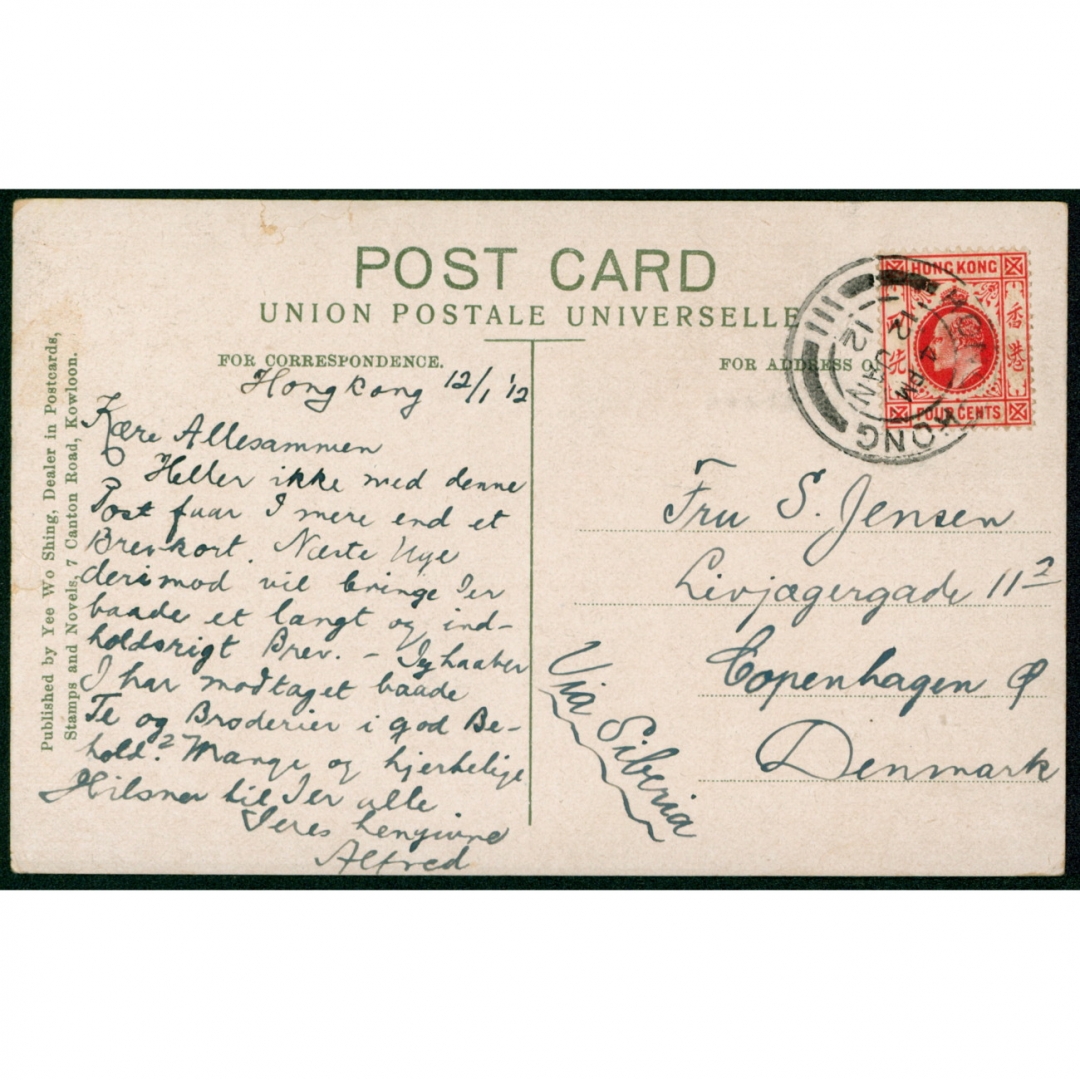 POST CARD
UNION POSTALE UNIVERSELLE
FOR CORRESPONDENCE.
FOR ADDRESS O
Published by Yee Wo Shing, Dealer in Postcards,
Stamps and Novels, 7 Canton Road, Kowloon.
Hongkong 12/1 '12
Kære Allesammen
Heller ikke med denne
Post faar I mere end et
Brevkort. Næste Uge
derimod vil bringe Jer
baade et langt og ind-
holdsrigt Brev. – Jeg haaber
I har modtaget baade
Te og Broderier i god Be-
hold? Mange og hjertelige
Hilsner til Jer alle.
Jeres hengivne
Alfred
HONG KONG
香港
FOUR CENTS
KONG
4 PM
12 JAN
12
Fru S. Jensen
Livjægergade 11²
Copenhagen Ø
Denmark
Via Siberia